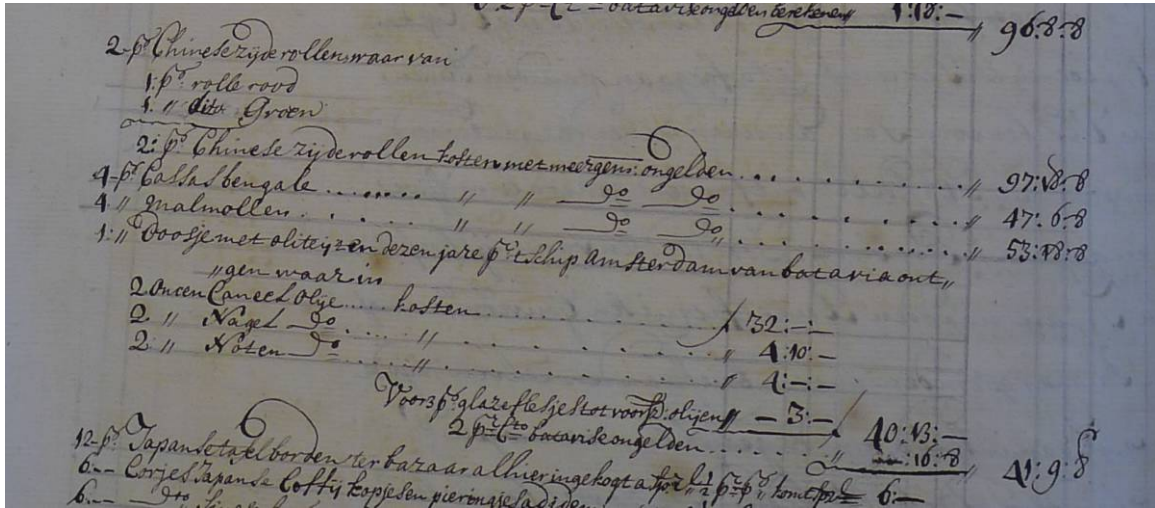 2 p:r C:to batavise ongelden berekenen „ 1:18:— „ 96:8:8
2-p:s Chinese zijde rollen, waar van
1: p:s rolle rood
1. „ dito Groen
2: p:s Chinese zijde rollen kosten met meergem: ongelden „ 97:18:8
4-p:s Cassas bengale „ „ D:o D:o „ 47:6:8
4 „ Malmollen „ „ D:o D:o „ 53:18:8
1: „ Doosje met oliteijt en dezen jare p:r t schip Amsterdam van batavia ont„
„gen waar in
2 Oncen Caneel Olije kosten / 32:—:—
2. „ Nagel D:o „ „ 4:10:—
2: „ Noten D:o „ „ 4:—:—
Voor 3 p:s glaze flesjes tot voorsz: olijen „ —3:— / 40:13:—
2 p:r C:to batavise ongelden „ —:16:8 „ 41:9:8
12-p:s Japanse tafel borden ter bazaar alhier ingekogt a sp:r 1/2 p:r p:s komt sp:r 6:—
6:— Corjes Japanse Coffij kopjes en pieringjes a d:o
6:— D:to